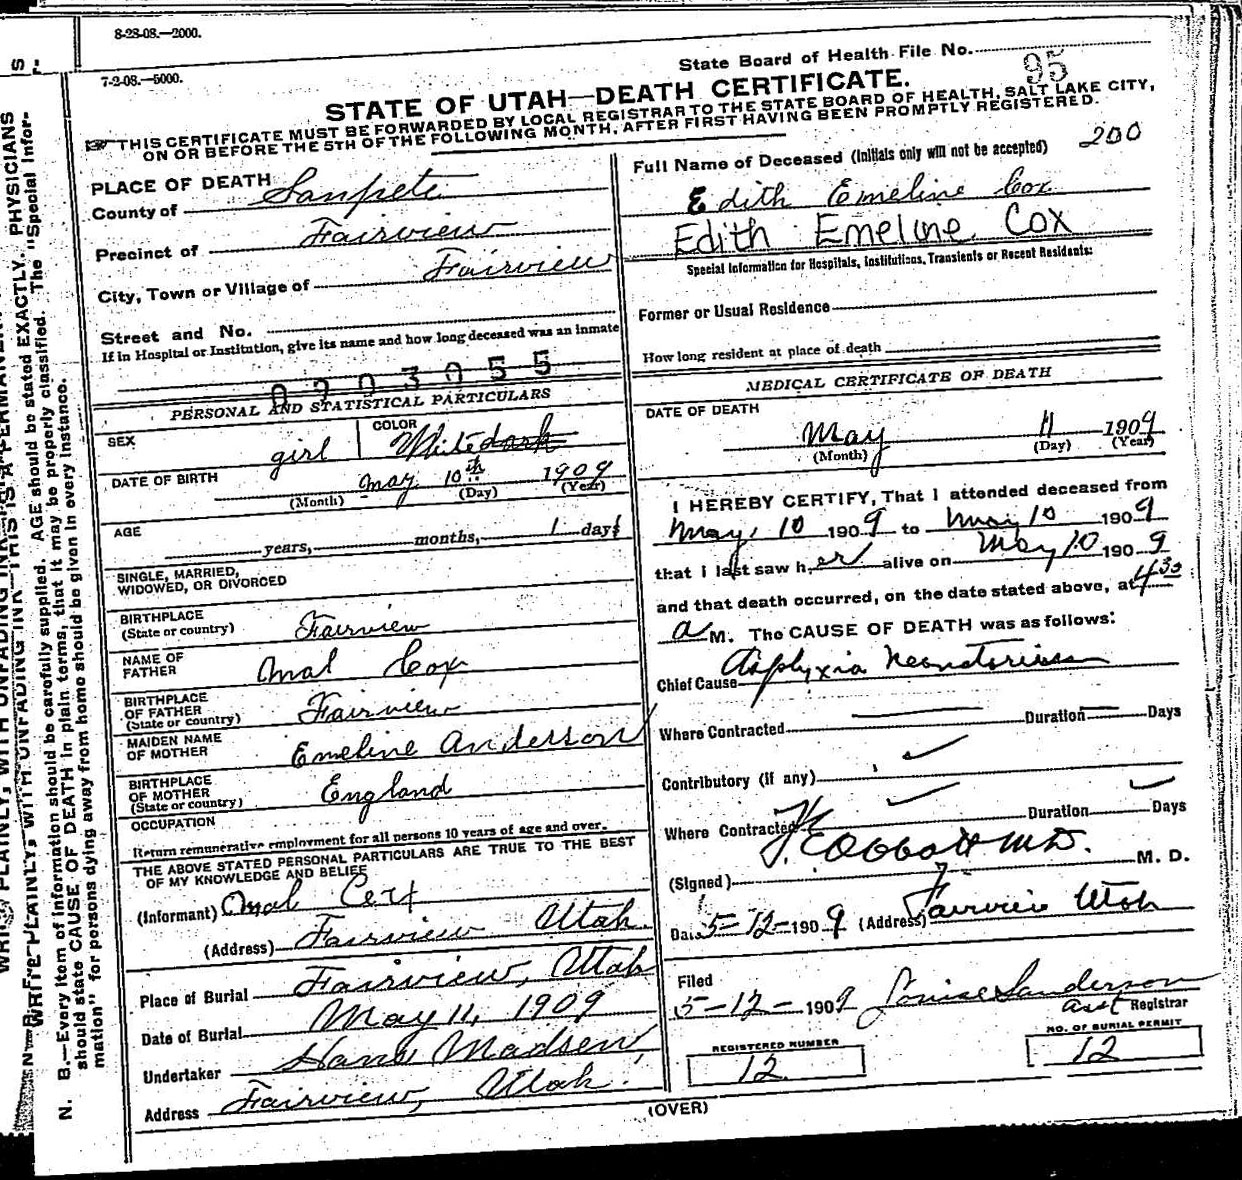 8-28-08.—2000.
7-2-08.—5000.
State Board of Health File No.
95
STATE OF UTAH—DEATH CERTIFICATE.
THIS CERTIFICATE MUST BE FORWARDED BY LOCAL REGISTRAR TO THE STATE BOARD OF HEALTH, SALT LAKE CITY,
ON OR BEFORE THE 5TH OF THE FOLLOWING MONTH, AFTER FIRST HAVING BEEN PROMPTLY REGISTERED.
PLACE OF DEATH
County of Sanpete
Precinct of Fairview
City, Town or Village of Fairview
Street and No.
If in Hospital or Institution, give its name and how long deceased was an inmate
PERSONAL AND STATISTICAL PARTICULARS
SEX girl COLOR White dark
DATE OF BIRTH May 10th 1909
(Month) (Day) (Year)
AGE years, months, 1 days
SINGLE, MARRIED,
WIDOWED, OR DIVORCED
BIRTHPLACE
(State or country) Fairview
NAME OF
FATHER Cox
BIRTHPLACE
OF FATHER
(State or country) Fairview
MAIDEN NAME
OF MOTHER Emeline Anderson
BIRTHPLACE
OF MOTHER
(State or country) England
OCCUPATION
Return remunerative employment for all persons 10 years of age and over.
THE ABOVE STATED PERSONAL PARTICULARS ARE TRUE TO THE BEST
OF MY KNOWLEDGE AND BELIEF
(Informant)
(Address) Fairview Utah
Place of Burial Fairview, Utah
Date of Burial May 11, 1909
Undertaker Hans Madsen,
Address Fairview, Utah.
Full Name of Deceased (Initials only will not be accepted) 200
Edith Emeline Cox
Edith Emeline Cox
Special Information for Hospitals, Institutions, Transients or Recent Residents:
Former or Usual Residence
How long resident at place of death
MEDICAL CERTIFICATE OF DEATH
DATE OF DEATH
May 11 1909
(Month) (Day) (Year)
I HEREBY CERTIFY, That I attended deceased from
May, 10 1909 to May 10 1909
that I last saw her alive on May 10 1909
and that death occurred, on the date stated above, at 4 30
a M. The CAUSE OF DEATH was as follows:
Chief Cause Asphyxia Neonatorum
Where Contracted Duration Days
Contributory (if any)
Where Contracted Duration Days
(Signed) M.D. M. D.
Date 5-12-1909 (Address) Fairview Utah
Filed
5-12-1909 Louise Sanderson
asst Registrar
REGISTERED NUMBER
12
NO. OF BURIAL PERMIT
12
(OVER)
N. B.—Every item of information should be carefully supplied. AGE should be stated EXACTLY. PHYSICIANS
should state CAUSE OF DEATH in plain terms, that it may be properly classified. The "Special Infor-
mation" for persons dying away from home should be given in every instance.